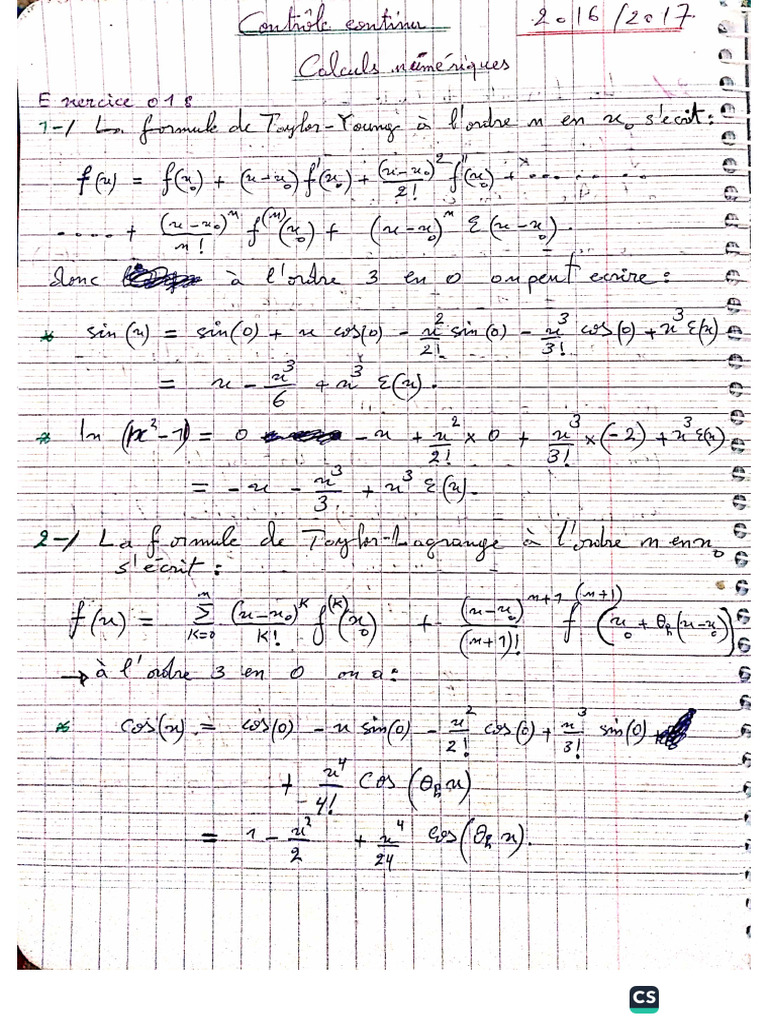 Contrôle continu 2016/2017
Calculs numériques
Exercice 01 :
1-/ La formule de Taylor-Young à l'ordre n en x₀ s'écrit :
f(x) = f(x₀) + (x-x₀) f'(x₀) + (x-x₀)²/2! f''(x₀) + .........
..... + (x-x₀)ⁿ/n! f⁽ⁿ⁾(x₀) + (x-x₀)ⁿ ε(x-x₀).
donc à l'ordre 3 en 0 on peut ecrire :
* sin(x) = sin(0) + x cos(0) - x²/2! sin(0) - x³/3! cos(0) + x³ ε(x)
= x - x³/6 + x³ ε(x).
* ln (x²-1) = 0 - x + x²/2! × 0 + x³/3! × (-2) + x³ ε(x)
= - x - x³/3 + x³ ε(x).
2-/ La formule de Taylor-Lagrange à l'ordre n en x₀
s'écrit :
f(x) = Σₖ₌₀ⁿ (x-x₀)ᵏ/k! f⁽ᵏ⁾(x₀) + (x-x₀)ⁿ⁺¹/(n+1)! f⁽ⁿ⁺¹⁾(x₀ + θₕ(x-x₀))
→ à l'ordre 3 en 0 on a :
* cos(x) = cos(0) - x sin(0) - x²/2! cos(0) + x³/3! sin(0)
+ x⁴/4! cos(θₕx)
= 1 - x²/2 + x⁴/24 cos(θₕx).
CS